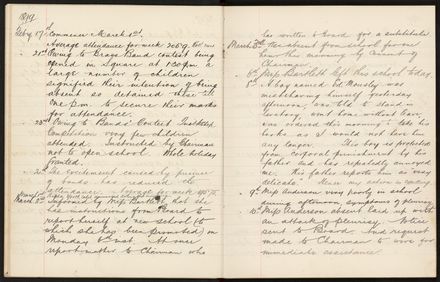 1879
Feb'y 17th commence March 1st.
Average attendance for week
21st Owing to Brass Band contest being
opened in Square at 1.30 p.m. a
large number of children
signified their intention of being
absent so detained them till
one p.m. to secure their marks
for attendance.
25th Owing to Bands' Contest
Competition very few children
attended. Instructed by Chairman
not to open school. Whole holiday
granted.
The excitement caused by
of bands has reduced the
attendance
March 3rd Informed by Miss Bartlett that she
has instructions from Board to
report herself at new school (to
which she has been promoted) on
Monday next. At once
report matter to Chairman who
has written to Board for a substitute
March 5th Was absent from school for one
hour this morning by consent of
Chairman
6th Miss Bartlett left this school today.
8th A boy named Ed. Mousley was
misbehaving himself yesterday
afternoon, was told to stand in
lavatory, went home without leave
and ordered this morning to take his
books as I would not have him
any longer. This boy is protected
from corporal punishment by his
father and has repeatedly annoyed
me. His father reports him as very
delicate.
9th Miss Anderson very poorly in school
during afternoon, symptoms of pleurisy
10th Miss Anderson absent laid up with
an attack of pleurisy. Notice
sent to Board and request
made to Chairman to wire for
immediate assistance